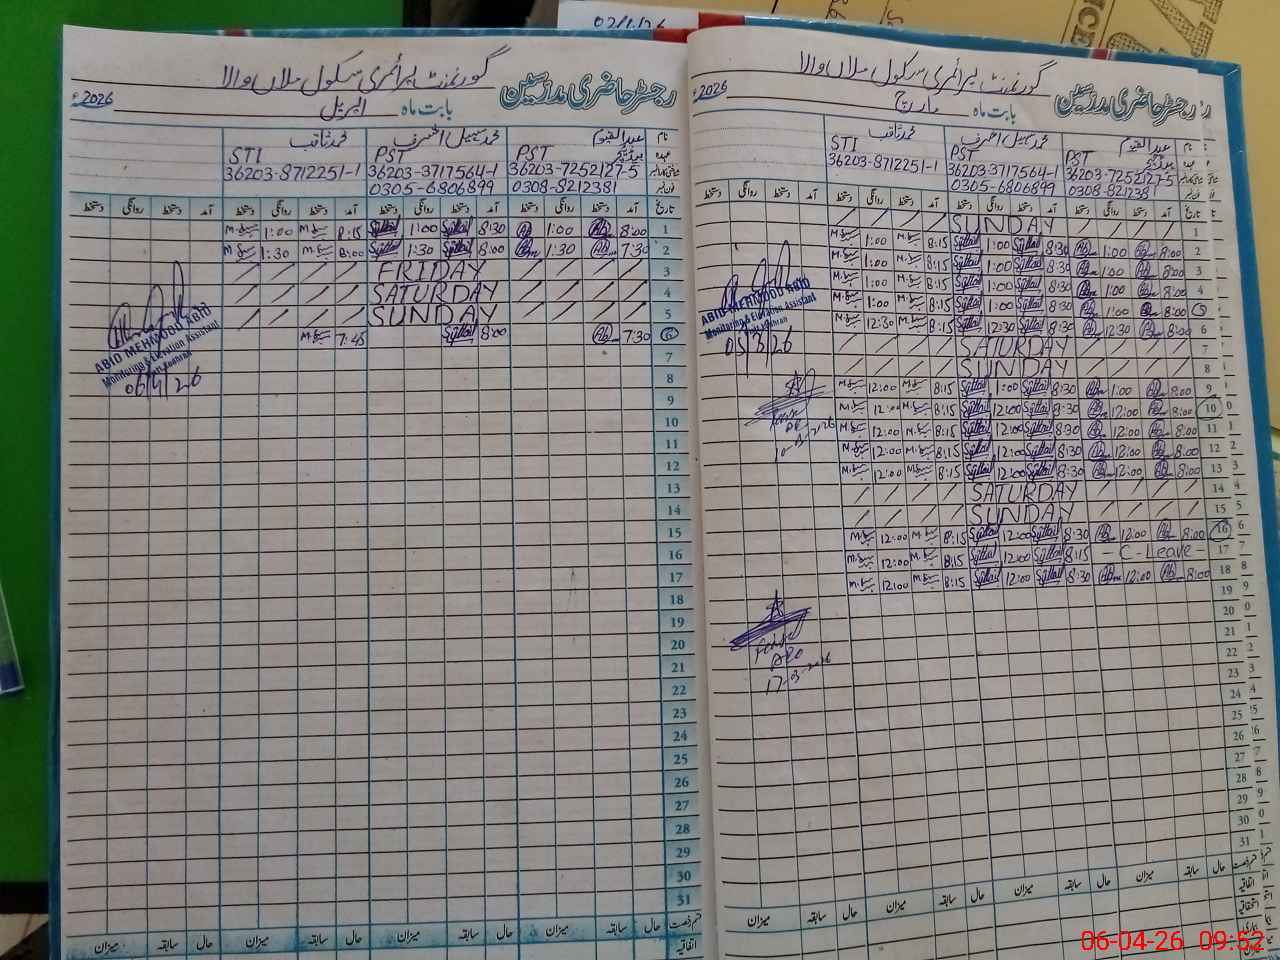 گورنمنٹ پرائمری سکول ملاں والا
رجسٹر حاضری مدرسین
بابت ماہ اپریل 2026ء
نام عبدالقیوم محمد سہیل اشرف محمد ثاقب
عہدہ PST ہیڈ ٹیچر PST STI
36203-7252127-5 36203-3717564-1 36203-8712251-1
0308-8212381 0305-6806899
تاریخ آمد دستخط روانگی دستخط آمد دستخط روانگی دستخط آمد دستخط روانگی دستخط آمد دستخط روانگی دستخط
1 8:00 1:00 8:30 1:00 8:15 1:00
2 7:30 1:30 8:00 1:30 8:00 1:30
3 FRIDAY
4 SATURDAY
5 SUNDAY
6 7:30 8:00 7:45
7
8
9
10
11
12
13
14
15
16
17
18
19
20
21
22
23
24
25
26
27
28
29
30
31
قسم رخصت حال سابقہ میزان حال سابقہ میزان حال سابقہ میزان حال سابقہ میزان
اتفاقیہ
ABID MEHMOOD ABID
Monitoring & Evaluation Assistant
Lodhran
06/4/26
گورنمنٹ پرائمری سکول ملاں والا
رجسٹر حاضری مدرسین
بابت ماہ مارچ 2026ء
نام عبدالقیوم محمد سہیل اشرف محمد ثاقب
عہدہ PST ہیڈ ٹیچر PST STI
36203-7252127-5 36203-3717564-1 36203-8712251-1
0308-8212381 0305-6806899
تاریخ آمد دستخط روانگی دستخط آمد دستخط روانگی دستخط آمد دستخط روانگی دستخط آمد دستخط روانگی دستخط
1 SUNDAY
2 8:00 1:00 8:30 1:00 8:15 1:00
3 8:00 1:00 8:30 1:00 8:15 1:00
4 8:00 1:00 8:30 1:00 8:15 1:00
5 8:00 1:00 8:30 1:00 8:15 1:00
6 8:00 12:30 8:30 12:30 8:15 12:30
7 SATURDAY
8 SUNDAY
9 8:00 1:00 8:30 1:00 8:15 12:00
10 8:00 12:00 8:30 12:00 8:15 12:00
11 8:00 12:00 8:30 12:00 8:15 12:00
12 8:00 12:00 8:30 12:00 8:15 12:00
13 8:00 12:00 8:30 12:00 8:15 12:00
14 SATURDAY
15 SUNDAY
16 8:00 12:00 8:30 12:00 8:15 12:00
17 - C-Leave - 8:15 12:00 8:15 12:00
18 8:00 12:00 8:30 12:00 8:15 12:00
19
20
21
22
23
24
25
26
27
28
29
30
31
قسم رخصت حال سابقہ میزان حال سابقہ میزان حال سابقہ میزان حال سابقہ میزان
اتفاقیہ
ABID MEHMOOD ABID
Monitoring & Evaluation Assistant
Lodhran
05/3/26
10-3-2026
17-3-2026
06-04-26 09:52